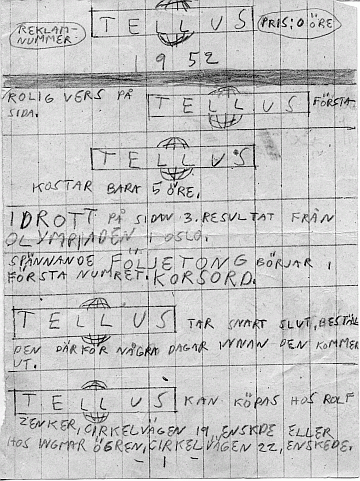 REKLAM-
NUMMER.
TELLUS
PRIS: 0 ÖRE
1952
ROLIG VERS PÅ
TELLUS FÖRSTA
SIDA.
TELLUS
KOSTAR BARA 5 ÖRE.
IDROTT PÅ SIDAN 3. RESULTAT FRÅN
OLYMPIADEN I OSLO.
SPÄNNANDE FÖLJETONG BÖRJAR I
FÖRSTA NUMRET. KORSORD.
TELLUS TAR SNART SLUT, BESTÄL
DEN DÄRFÖR NÅGRA DAGAR INNAN DEN KOMMER
UT.
TELLUS KAN KÖPAS HOS ROLF
ZENKER, CIRKELVÄGEN 19, ENSKDE ELLER
HOS INGMAR ÖGREN, CIRKELVÄGEN 22, ENSKEDE.
- 1 -